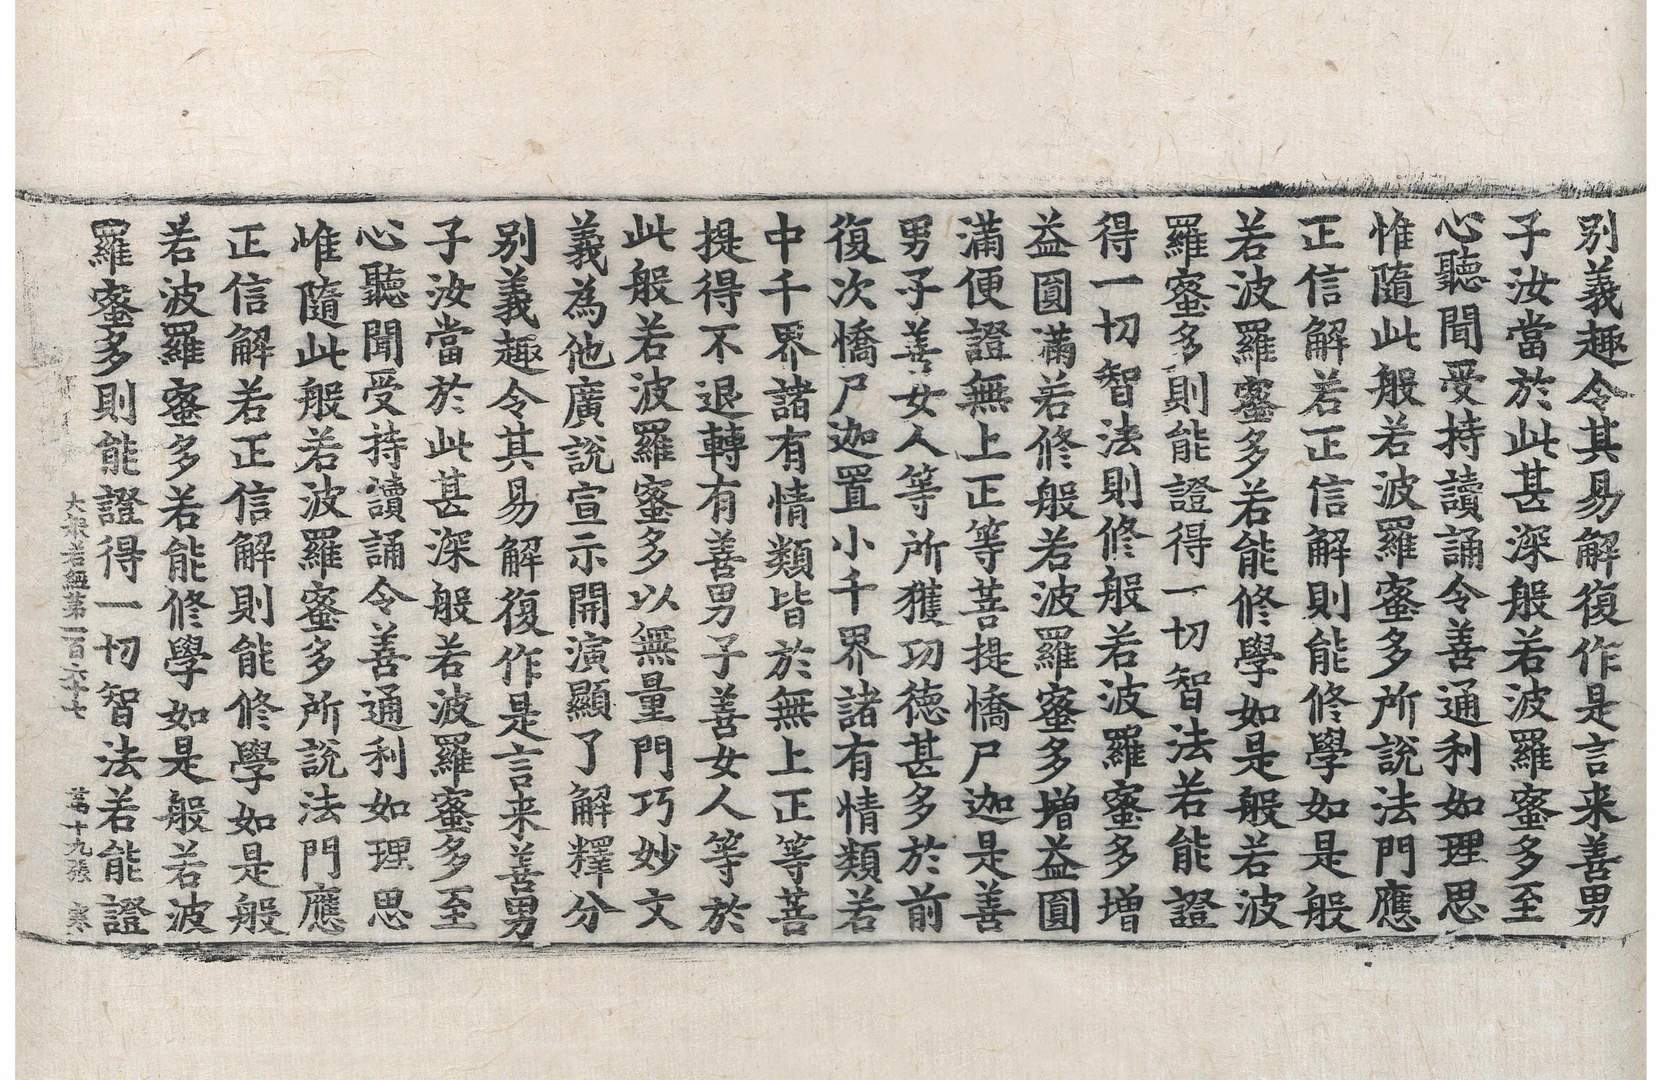 别義趣令其易解復作是言来善男
子汝當於此甚深般若波羅蜜多至
心聽聞受持讀誦令善通利如理思
惟隨此般若波羅蜜多所説法門應
正信解若正信解則能修學如是般
若波羅蜜多若能修學如是般若波
羅蜜多則能證得一切智法若能證
得一切智法則修般若波羅蜜多增
益圓滿若修般若波羅蜜多增益圓
滿便證無上正等菩提憍尸迦是善
男子善女人等所獲功德甚多於前
復次憍尸迦置小千界諸有情類若
中千界諸有情類皆於無上正等菩
提得不退轉有善男子善女人等於
此般若波羅蜜多以無量門巧妙文
義為他廣説宣示開演顯了解釋分
别義趣令其易解復作是言来善男
子汝當於此甚深般若波羅蜜多至
心聽聞受持讀誦令善通利如理思
惟隨此般若波羅蜜多所説法門應
正信解若正信解則能修學如是般
若波羅蜜多若能修學如是般若波
羅蜜多則能證得一切智法若能證
大般若經第一百六十七 第十九張 寒